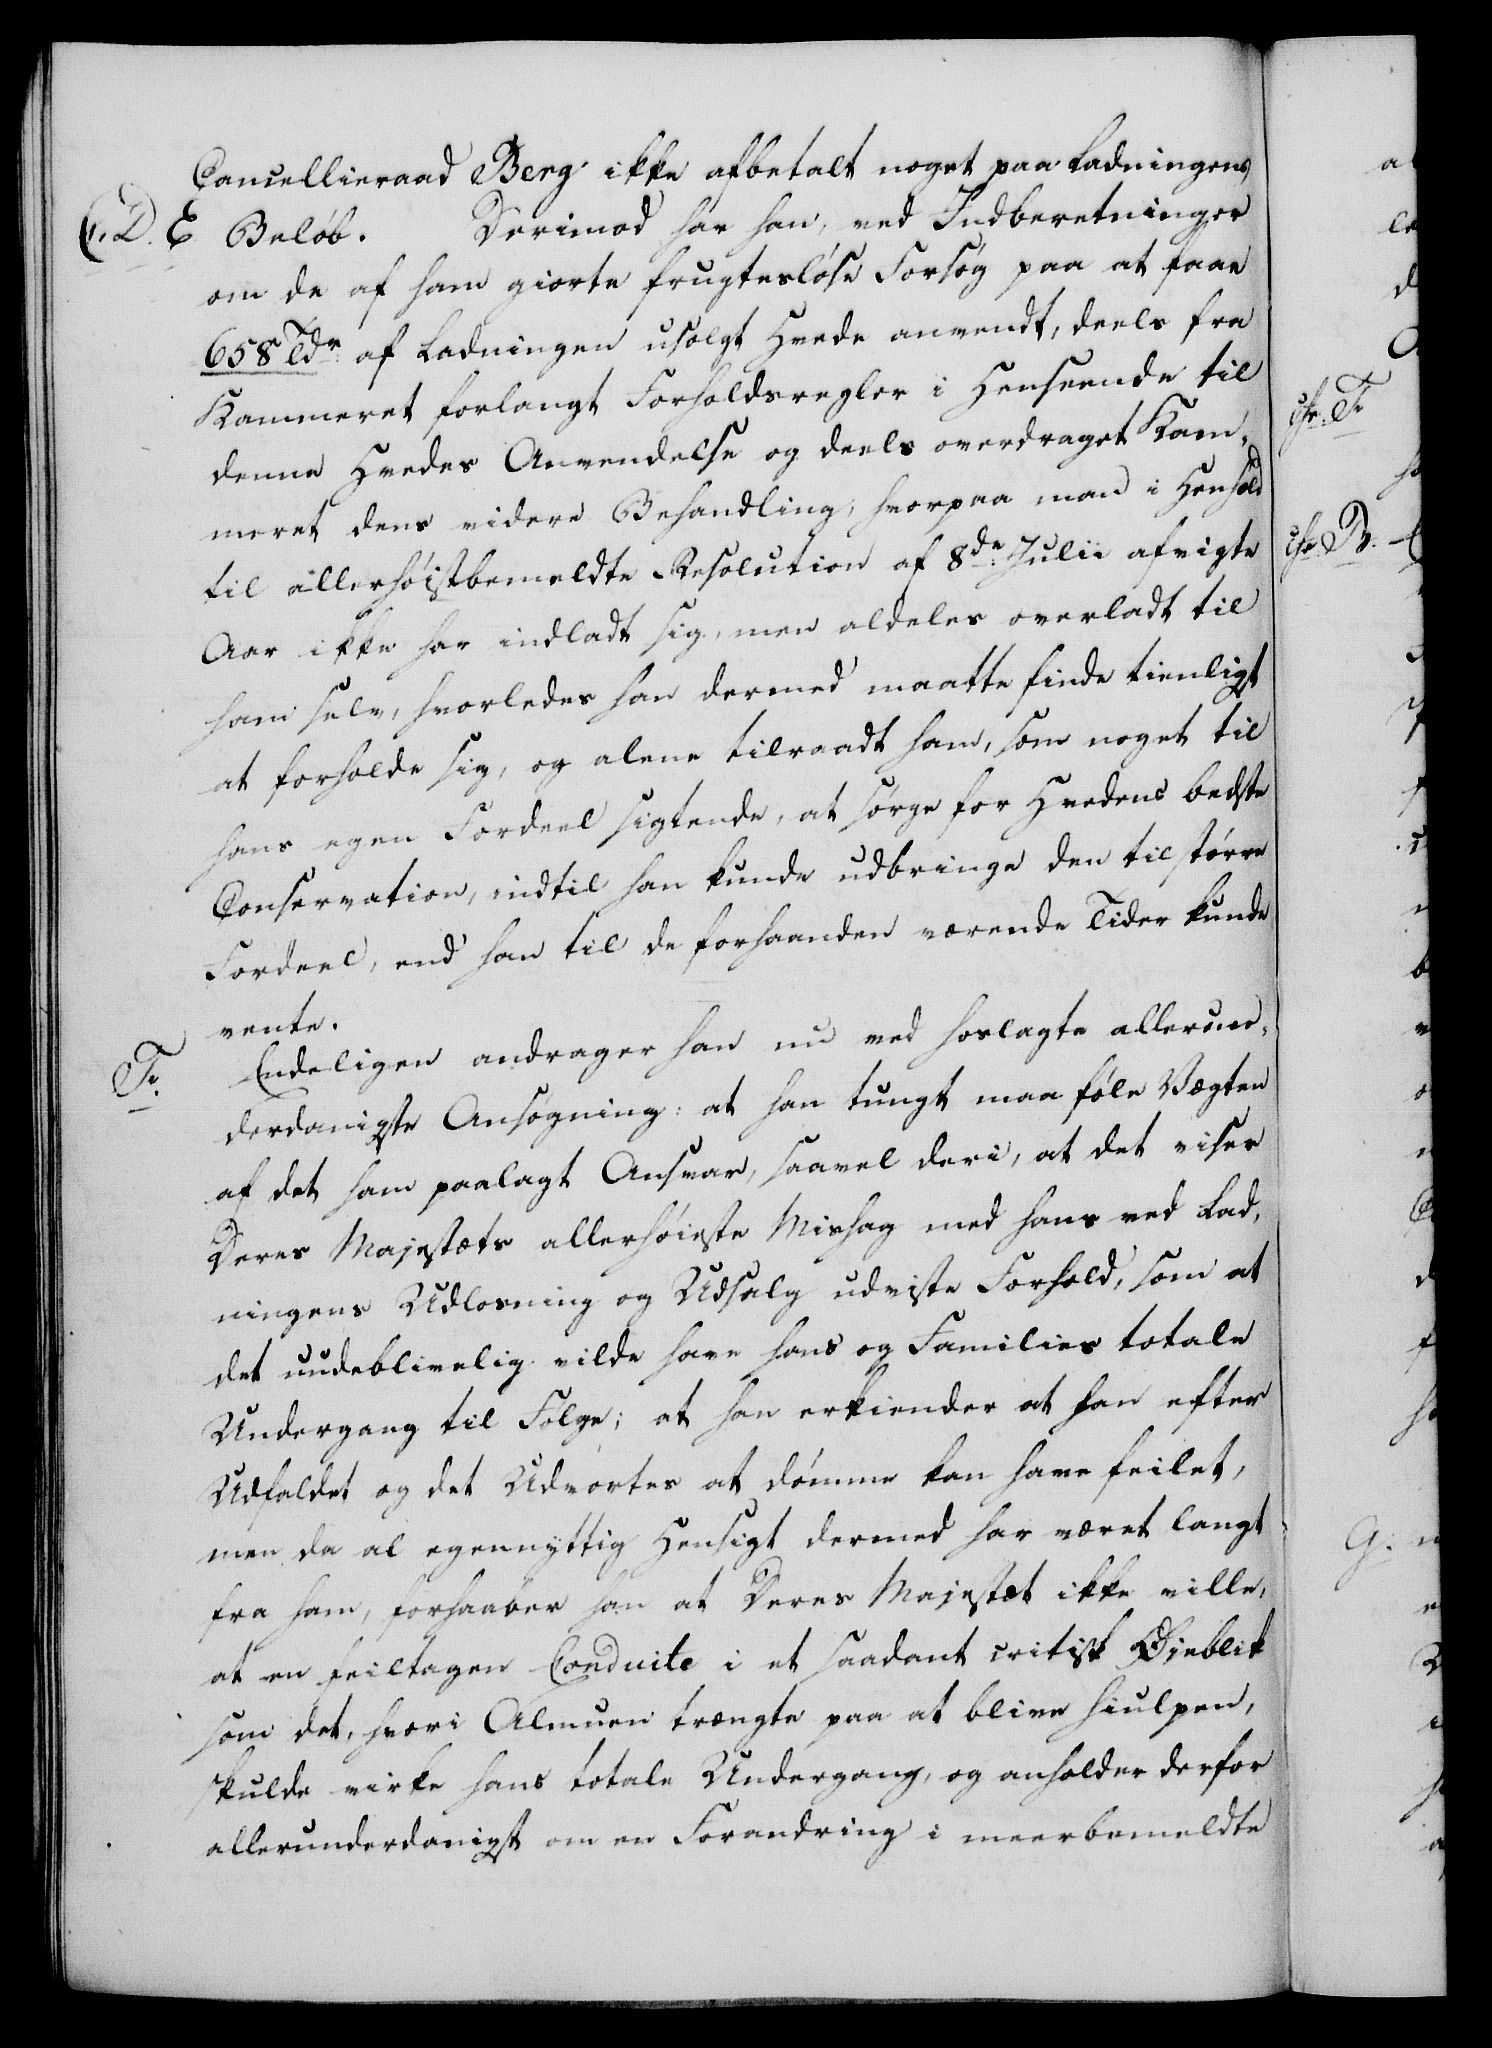 Cancellieraad Berg ikke afbetalt noget paa Ladningens
C. D. E Beløb. Derimod har han, ved Indberetninger
om de af ham giorte frugtesløse Forsøg paa at faae
658 Tdr af Ladningen usolgt Hvede anvendt, deels fra
Kammeret forlangt Forholdsregler i Henseende til
denne Hvedes Anvendelse og deels overdraget Kam-
meret dens videre Behandling, hvorpaa man i Henhold
til allerhøistbemeldte Resolution af 8de Julii afvigte
Aar ikke har indladt sig, men aldeles overladt til
ham selv, hvorledes han dermed maatte finde tienligt
at forholde sig, og alene tilraadt ham, som noget til
hans egen Fordeel sigtende, at sørge for Hvedens bedste
Conservation, indtil han kunde udbringe den til større
Fordeel, end han til de forhaanden værende Tider kunde
vente.
F. Endeligen andrager han nu ved hoslagte allerun-
derdanigste Ansøgning: at han tungt maa føle Vægten
af det ham paalagt Ansvar, saavel deri, at det viser
Deres Majestæts allerhøieste Mishag med hans ved Lad-
ningens Udlosning og Udsalg udviste Forhold, som at
det uudeblivelig vilde have hans og Families totale
Undergang til Følge; at han erkiender at han efter
Udfaldet og det Udvortes at dømme kan have feilet,
men da al egennyttig Hensigt dermed har været langt
fra ham, forhaaber han at Deres Majestæt ikke ville,
at en feiltagen Conduite i et saadant critisk Øieblik
som det, hvori Almuen trængte paa at blive hiulpen,
skulde virke hans totale Undergang, og anholder derfor
allerunderdanigst om en Forandring i meerbemeldte
cfr: F.
cfr. B.
G.